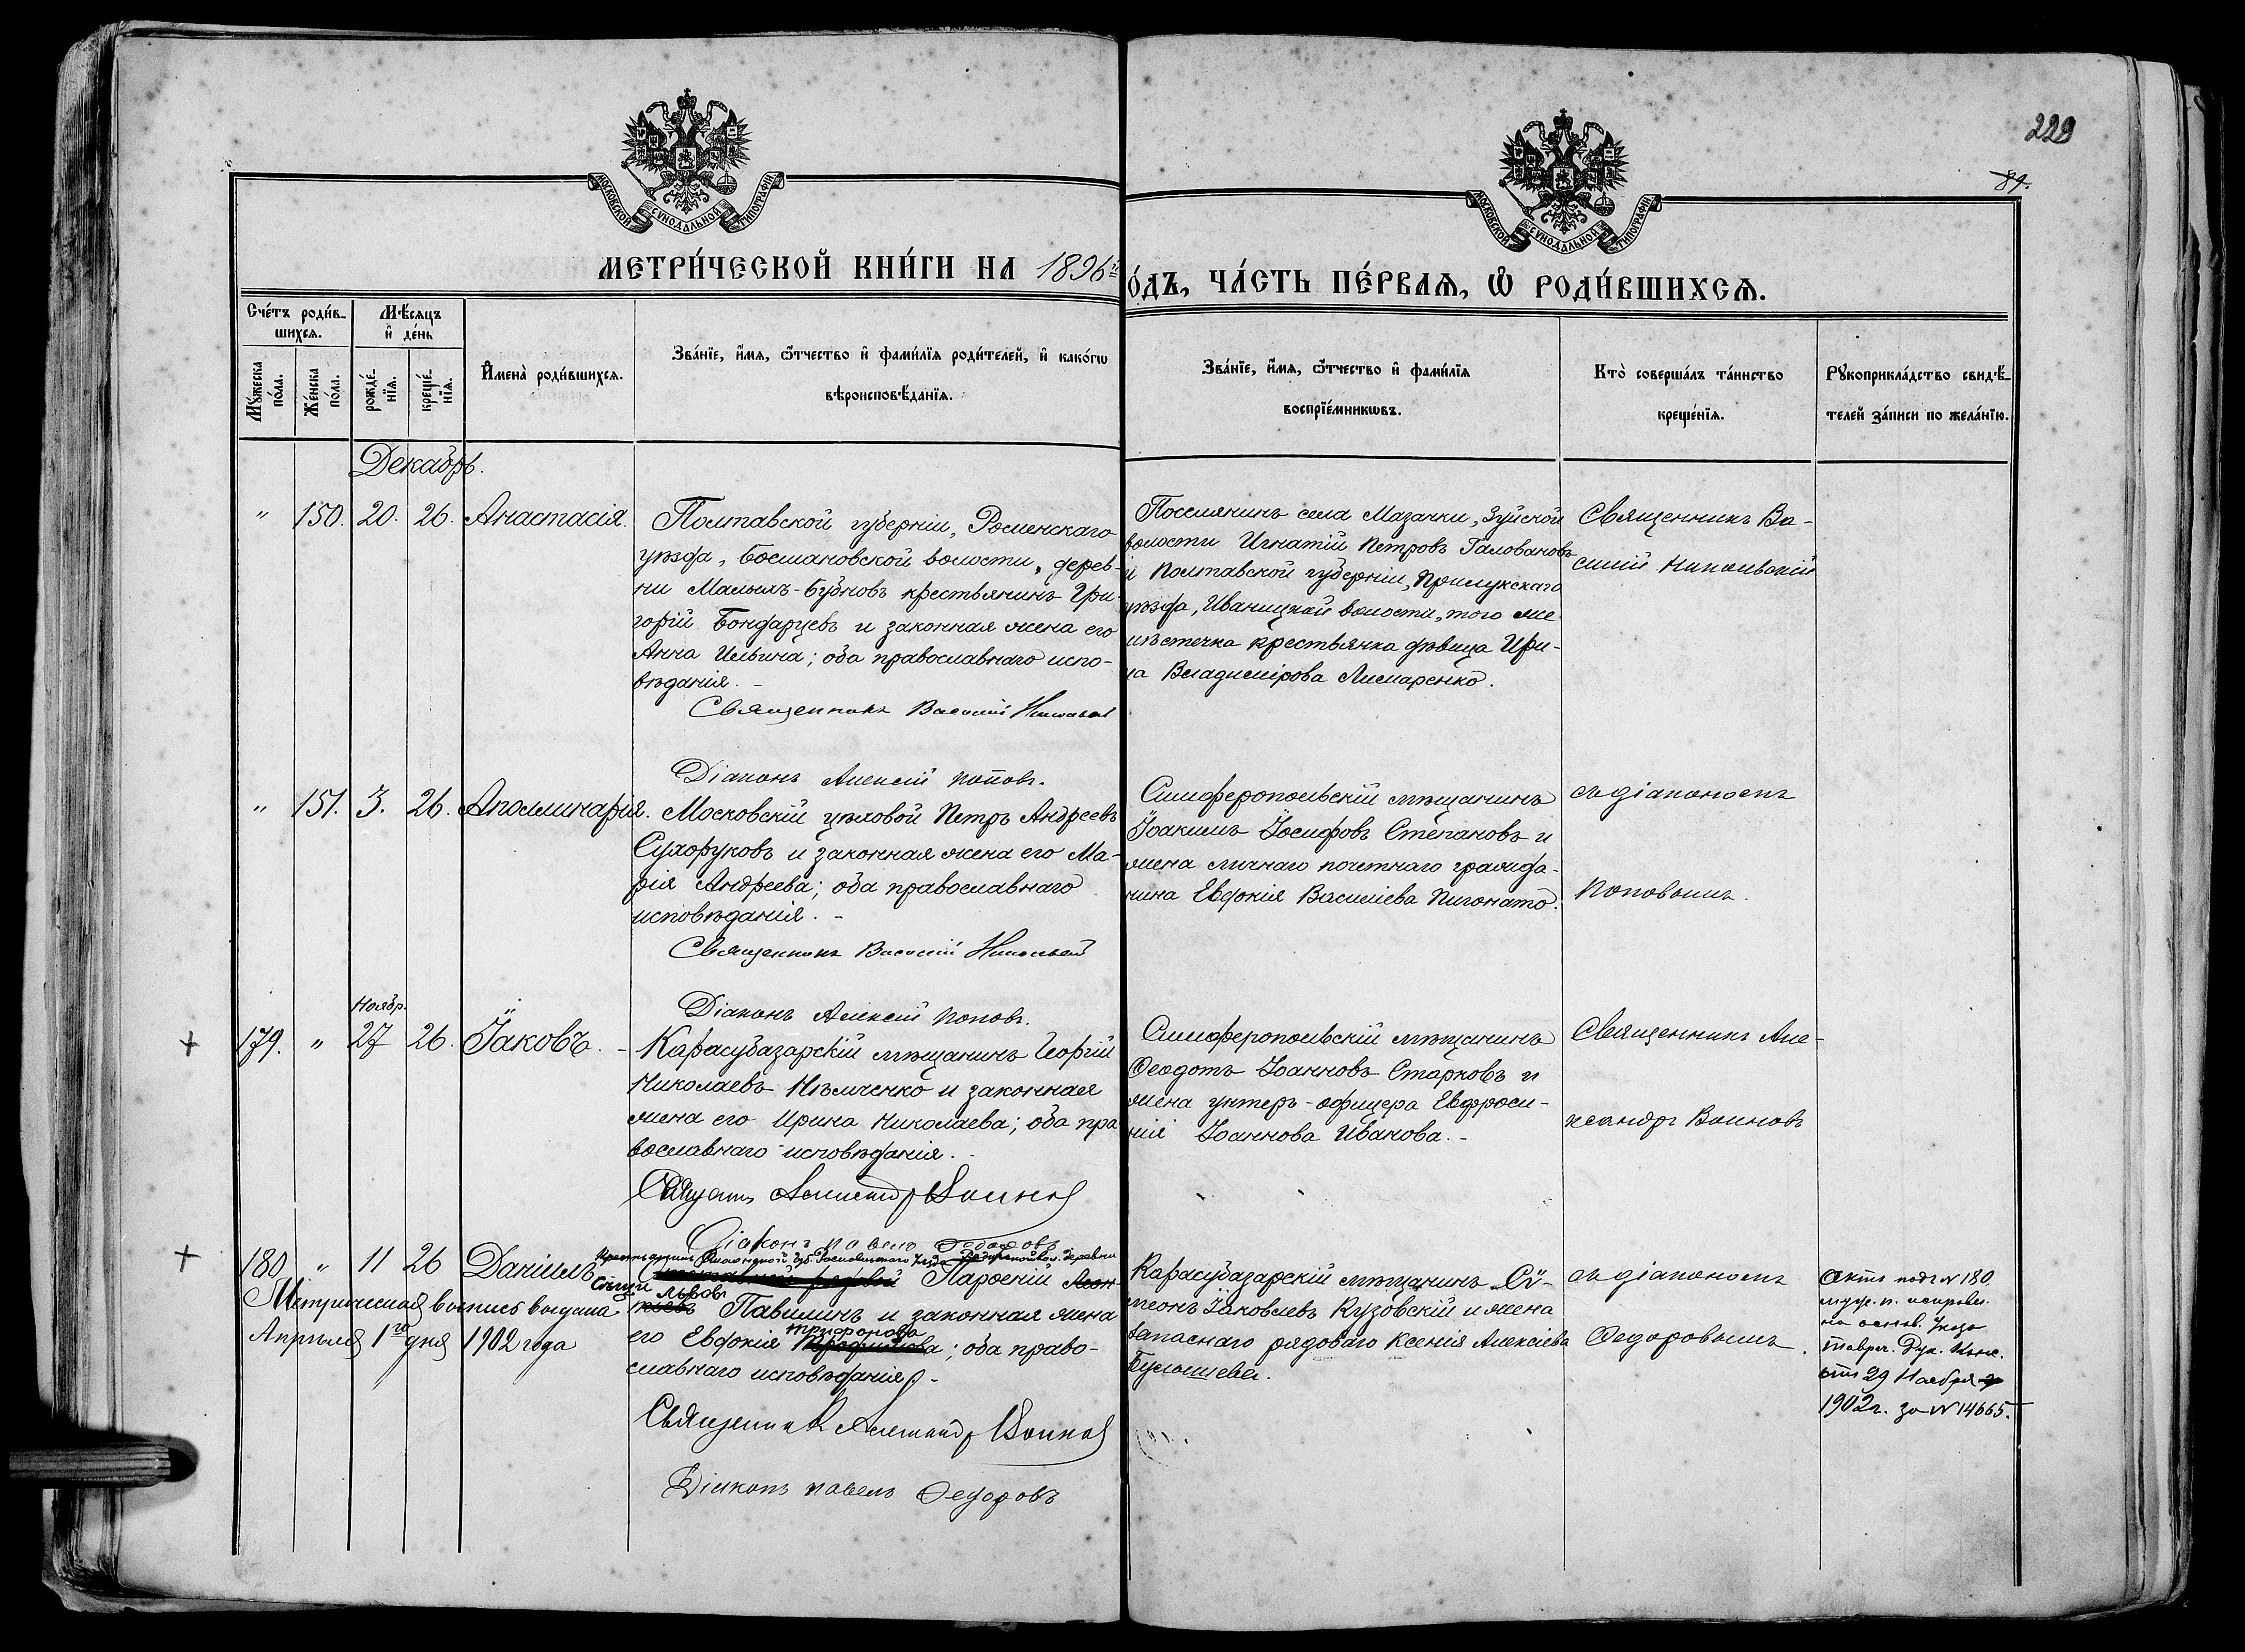 229
89.
МОСКОВСКОЙ СѴНОДАЛЬНОЙ ТИПОГРАФІИ
МОСКОВСКОЙ СѴНОДАЛЬНОЙ ТИПОГРАФІИ
МЕТРИ́ЧЕСКОЙ КНИ́ГИ НА 1896 го́дъ, ЧА́СТЬ ПЕ́РВАѦ, Ѡ҆ РОДИ́ВШИХСѦ.
Сче́тъ роди́в-
шихсѧ.
Мѣ́сѧцъ
и҆ де́нь
Мꙋ́жеска
по́ла.
Же́нска
по́ла.
рожде́-
нїѧ.
креще́-
нїѧ.
И҆мена̀ роди́вшихсѧ.
Зва́нїе, и҆́мѧ, ѻ҆́тчество и҆ фами́лїѧ роди́телей, и҆ како́гѡ
вѣроисповѣ́данїѧ.
Зва́нїе, и҆́мѧ, ѻ҆́тчество и҆ фами́лїѧ
воспрїе́мникѡвъ.
Кто̀ соверша́лъ та́инство
креще́нїѧ.
Рꙋкоприкла́дство свидѣ́-
телей за́писи по жела́нїю.
Декабрь.
" 150. 20. 26. Анастасія.
Полтавской губерніи, Роменскаго
уѣзда, Босмановской волости, дерев-
ни Малыхъ-Бубновъ крестьянинъ Гри
горій Бондарцевъ и законная жена его
Анна Ильина; оба православнаго испо-
вѣданія. -
Священникъ Василій Никольскій
Діаконъ Алексій Поповъ.
Поселянинъ села Мазанки, Зуйской
волости Игнатій Петровъ Галовановъ
и Полтавской губерніи, Прилукскаго
уѣзда, Иваницкой волости, того же
мѣстечка крестьянка дѣвица Ири-
на Владимірова Лимаренко.
Священникъ Ва-
силій Никольскій
" 151. 3. 26. Аполлинарія.
Московскій цѣховой Петръ Андреевъ
Сухоруковъ и законная жена его Ма-
рія Андреева; оба православнаго
исповѣданія. -
Священникъ Василій Никольскій
Діаконъ Алексій Поповъ.
Симферопольскій мѣщанинъ
Іоакимъ Іосифовъ Степановъ и
жена личнаго почетнаго гражда-
нина Евдокія Василіева Пигонато.
съ діакономъ
Поповымъ.
Ноябр.
+ 179. " 27 26. Іаковъ. -
Карасубазарскій мѣщанинъ Георгій
Николаевъ Нѣмченко и законная
жена его Ирина Николаева; оба пра
вославнаго исповѣданія. -
Священ. Александр Воинов
Діаконъ Павелъ Ѳедоровъ
Симферопольскій мѣщанинъ
Ѳеодотъ Іоанновъ Старковъ и
жена унтеръ-офицера Евфроси-
нія Іоаннова Иванова. -
Священникъ Але-
ксандръ Воиновъ
+ 180 " 11 26 Даніилъ
Крестьянинъ Смоленской губ. Рославльскаго уѣзда вол. деревни
Пароеній Леон-
Львовъ
тьевъ Павлинъ и законная жена
Трифонова
его Евдокія; оба право-
славнаго исповѣданія. -
Священник Александр Воинов
Діаконъ Павелъ Ѳедоровъ
Метрическая выпись выдана
Апрѣля 1го дня 1902 года
Карасубазарскій мѣщанинъ Сѵ-
меонъ Іаковлевъ Кузовскій и жена
запаснаго рядоваго Ксенія Алексіева
съ діакономъ
Ѳедоровымъ.
Актъ подъ № 180
муж. п. исправлен.
на основ. Указа
Таврич. Дух. Конс.
отъ 29 Ноября
1902 г. за № 14665.